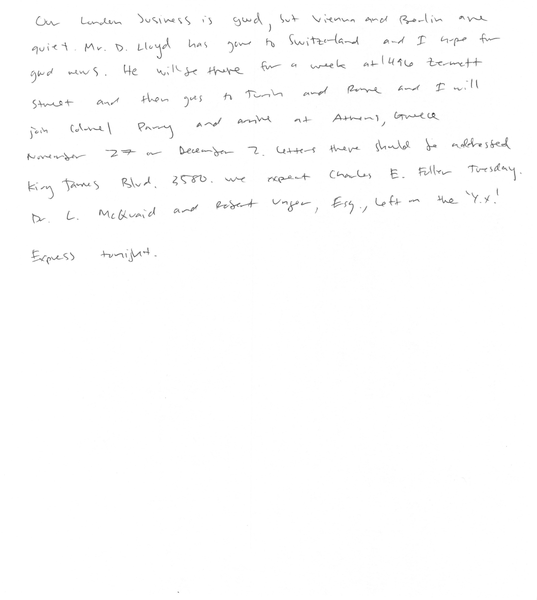 Our London business is good, but Vienna and Berlin are
quiet. Mr. D. Lloyd has gone to Switzerland and I hope for
good news. He will be there for a week at 1496 Zermott
Street and then goes to Turin and Rome and I will
join Colonel Parry and arrive at Athens, Greece
November 27 or December 2. Letters there should be addressed
King James Blvd. 3580. We expect Charles E. Fuller Tuesday.
Dr. L. McQuaid and Robert Unger, Esq., left on the 'Y.X.'
Express tonight.